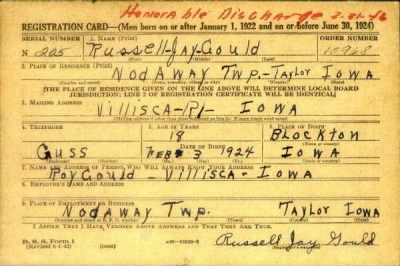 Honorable Discharge 2-21-46
REGISTRATION CARD—(Men born on or after January 1, 1922 and on or before June 30, 1924)
SERIAL NUMBER 1. NAME (Print) ORDER NUMBER
N 205 Russell-Jay-Gould 10968
2. PLACE OF RESIDENCE (Print)
Nodaway Twp.-Taylor Iowa
[THE PLACE OF RESIDENCE GIVEN ON THE LINE ABOVE WILL DETERMINE LOCAL BOARD
JURISDICTION; LINE 2 OF REGISTRATION CERTIFICATE WILL BE IDENTICAL]
3. MAILING ADDRESS
Villisca-R1- Iowa
4. TELEPHONE 5. AGE IN YEARS 6. PLACE OF BIRTH
18 Blockton
DATE OF BIRTH
Guss Feb 3 1924 Iowa
7. NAME AND ADDRESS OF PERSON WHO WILL ALWAYS KNOW YOUR ADDRESS
Roy Gould - Villisca - Iowa
8. EMPLOYER'S NAME AND ADDRESS
9. PLACE OF EMPLOYMENT OR BUSINESS
Nodaway Twp. Taylor Iowa
I AFFIRM THAT I HAVE VERIFIED ABOVE ANSWERS AND THAT THEY ARE TRUE.
D. S. S. Form 1
(Revised 6-1-42)
Russell Jay Gould